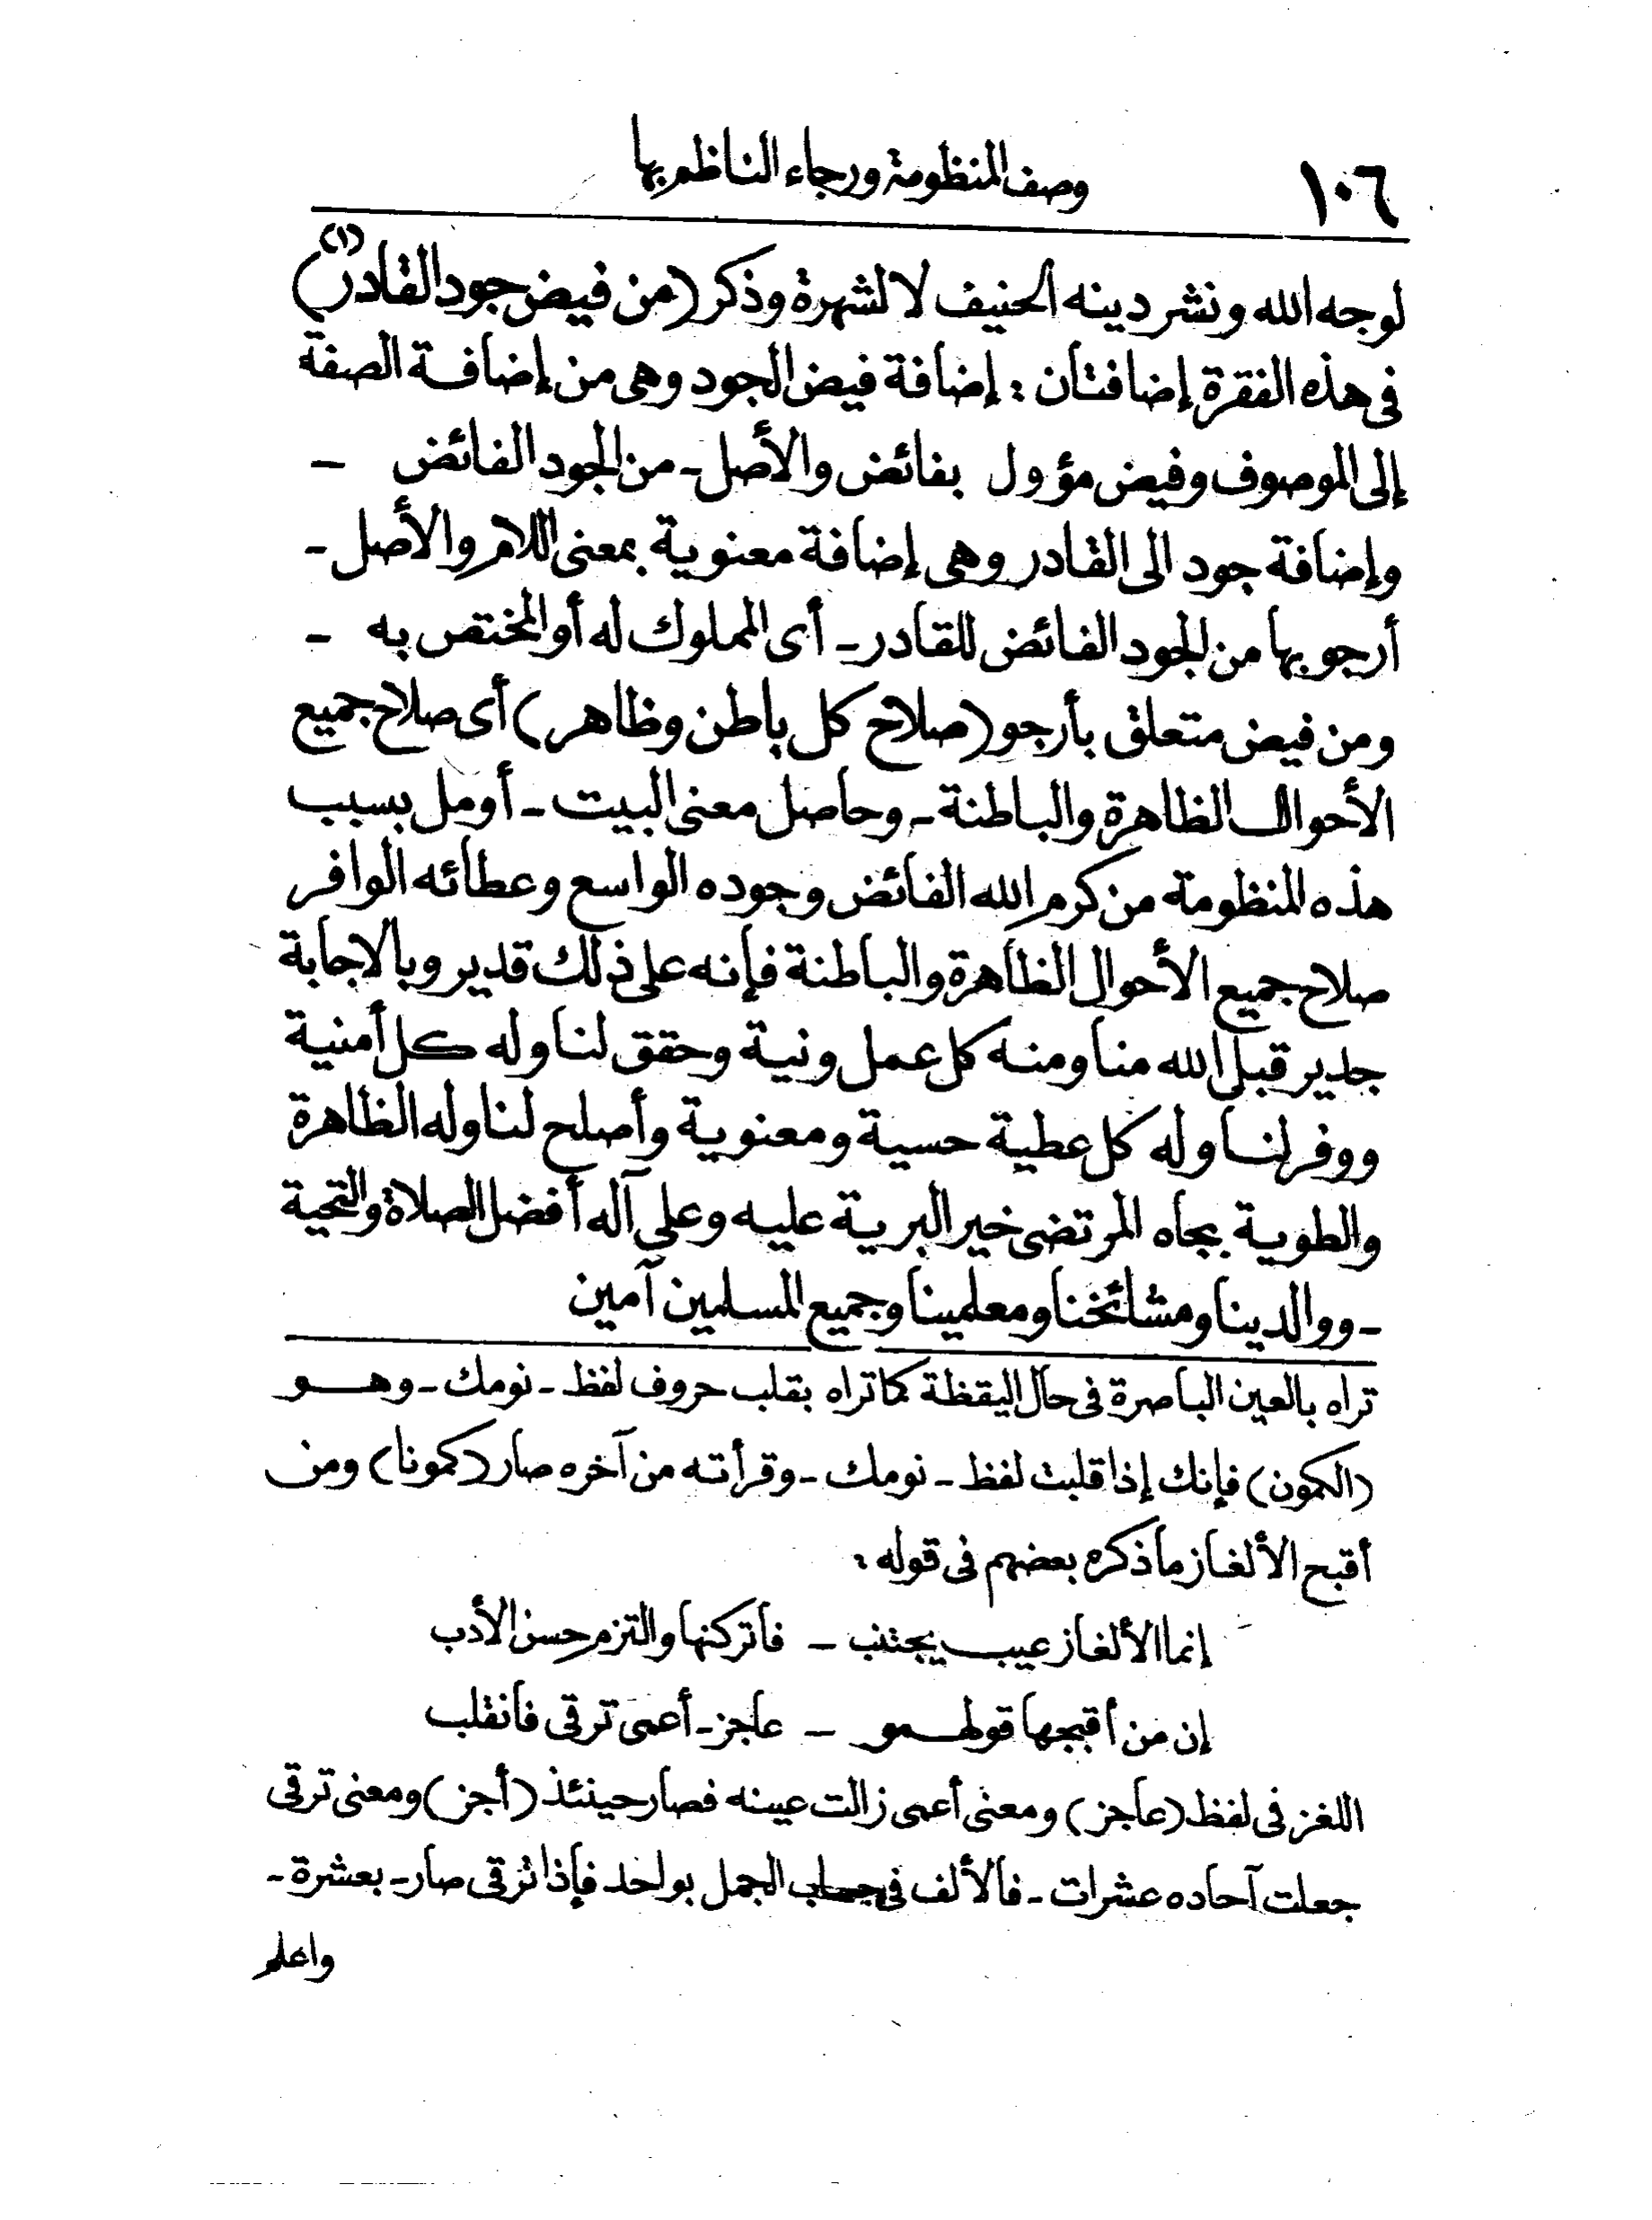 ١٠٦ وصف المنظومة ورجاء الناظم بها
لوجه الله ونشر دينه الحنيف لا لشهرة وذكر (من فيض جود القادر) (١)
فى هذه الفقرة إضافتان : إضافة فيض الجود وهى من إضافة الصفة
إلى الموصوف وفيض مؤول بفائض والأصل - من الجود الفائض -
وإضافة جود الى القادر وهى إضافة معنوية بمعنى اللام والأصل -
أرجو بها من الجود الفائض للقادر - أى المملوك له أو المختص به -
ومن فيض متعلق بأرجو (صلاح كل باطن وظاهر) أى صلاح جميع
الأحوال الظاهرة والباطنة - وحاصل معنى البيت - أومل بسبب
هذه المنظومة من كرم الله الفائض وجوده الواسع وعطائه الوافر
صلاح جميع الأحوال الظاهرة والباطنة فإنه على ذلك قدير وبالاجابة
جدير قبل الله منا ومنه كل عمل ونية وحقق لنا وله كل أمنية
ووفر لنا وله كل عطية حسية ومعنوية وأصلح لنا وله الظاهرة
والطوية بجاه المرتضى خير البرية عليه وعلى آله أفضل الصلاة والتحية
- ووالدينا ومشائخنا ومعلمينا وجميع المسلمين آمين
تراه بالعين الباصرة فى حال اليقظة كما تراه بقلب حروف لفظ - نومك - وهو
(الكمون) فإنك إذا قلبت لفظ - نومك - وقرأته من آخره صار (كمونا) ومن
أقبح الألغاز ما ذكره بعضهم فى قوله :
إنما الألغاز عيب يجتنب - فاتركنها والتزم حسن الأدب
إن من أقبحها قولهمو - عاجز - أعمى ترقى فانقلب
اللغز فى لفظ (عاجز) ومعنى أعمى زالت عينه فصار حينئذ (أجز) ومعنى ترقى
جعلت آحاده عشرات - فالألف فى حساب الجمل بواحد فإذا ترقى صار - بعشرة -
واعلم